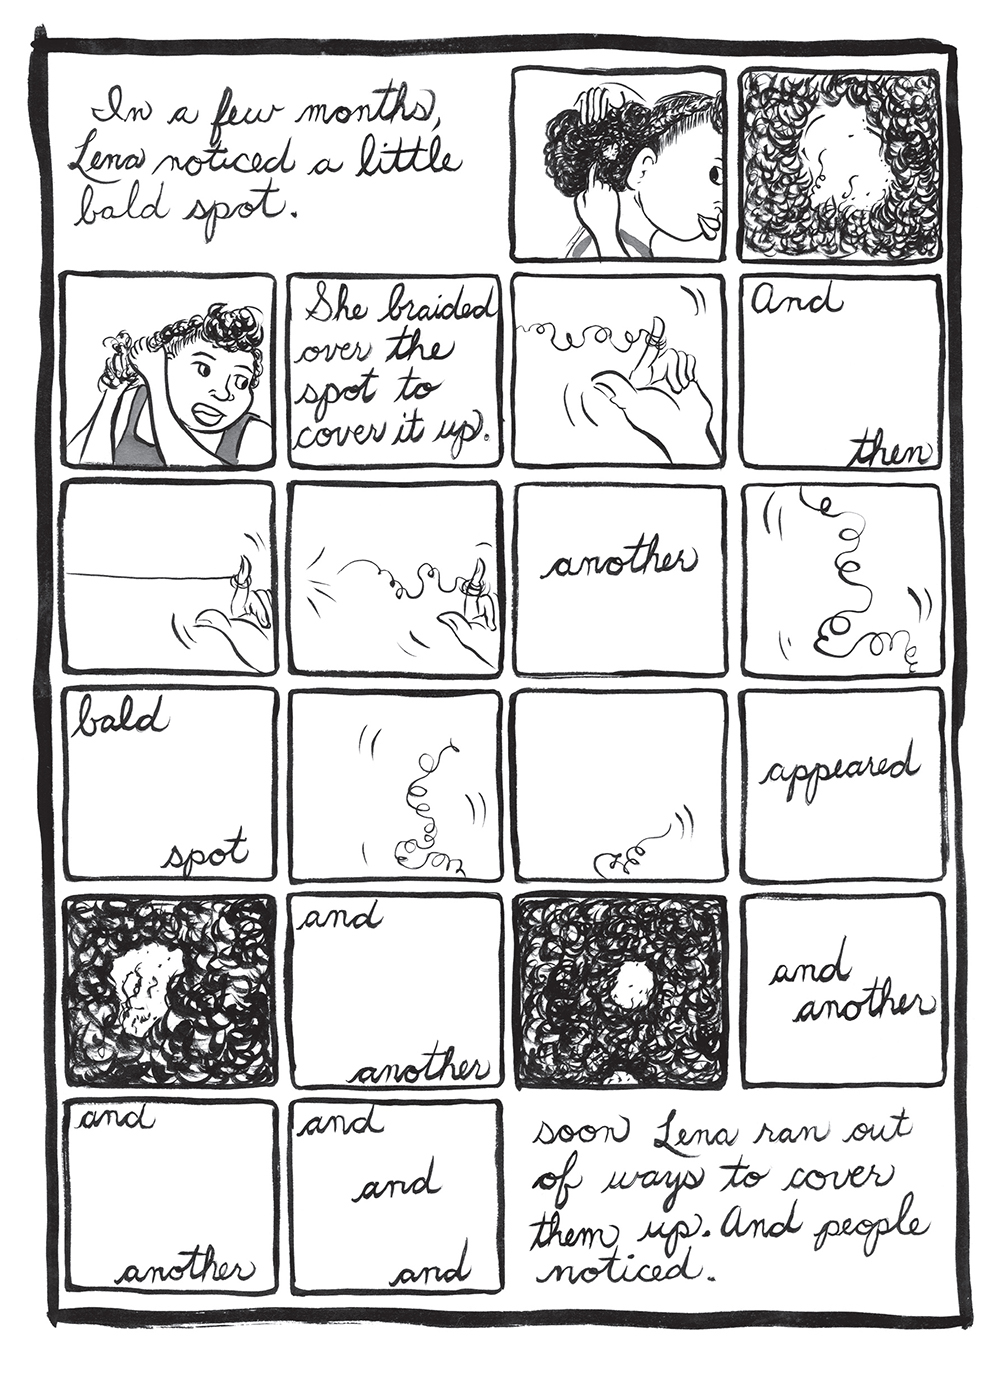 In a few months,
Lena noticed a little
bald spot.
She braided
over the
spot to
cover it up.
And
then
another
bald
spot
appeared
and
another
and
another
and
another
and
and
and
soon Lena ran out
of ways to cover
them up. And people
noticed.